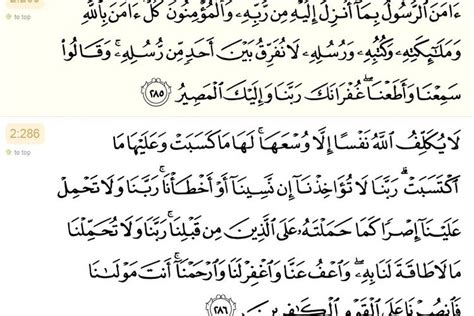 ءَامَنَ ٱلرَّسُولُ بِمَآ أُنزِلَ إِلَيْهِ مِن رَّبِّهِۦ وَٱلْمُؤْمِنُونَ كُلٌّ ءَامَنَ بِٱللَّهِ
وَمَلَـٰٓئِكَتِهِۦ وَكُتُبِهِۦ وَرُسُلِهِۦ لَا نُفَرِّقُ بَيْنَ أَحَدٍ مِّن رُّسُلِهِۦ ۚ وَقَالُوا۟
to top
سَمِعْنَا وَأَطَعْنَا ۖ غُفْرَانَكَ رَبَّنَا وَإِلَيْكَ ٱلْمَصِيرُ ٢٨٥
2:286
to top
لَا يُكَلِّفُ ٱللَّهُ نَفْسًا إِلَّا وُسْعَهَا ۚ لَهَا مَا كَسَبَتْ وَعَلَيْهَا مَا
ٱكْتَسَبَتْ ۗ رَبَّنَا لَا تُؤَاخِذْنَآ إِن نَّسِينَآ أَوْ أَخْطَأْنَا ۚ رَبَّنَا وَلَا تَحْمِلْ
عَلَيْنَآ إِصْرًا كَمَا حَمَلْتَهُۥ عَلَى ٱلَّذِينَ مِن قَبْلِنَا ۚ رَبَّنَا وَلَا تُحَمِّلْنَا
مَا لَا طَاقَةَ لَنَا بِهِۦ ۖ وَٱعْفُ عَنَّا وَٱغْفِرْ لَنَا وَٱرْحَمْنَآ ۚ أَنتَ مَوْلَىٰنَا
فَٱنصُرْنَا عَلَى ٱلْقَوْمِ ٱلْكَـٰفِرِينَ ٢٨٦